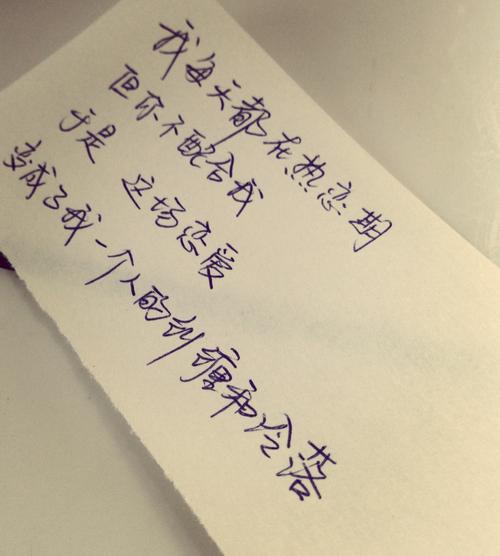 我每天都在热恋期
但你不配合我
于是 这场恋爱
变成了我一个人的纠缠和冷落